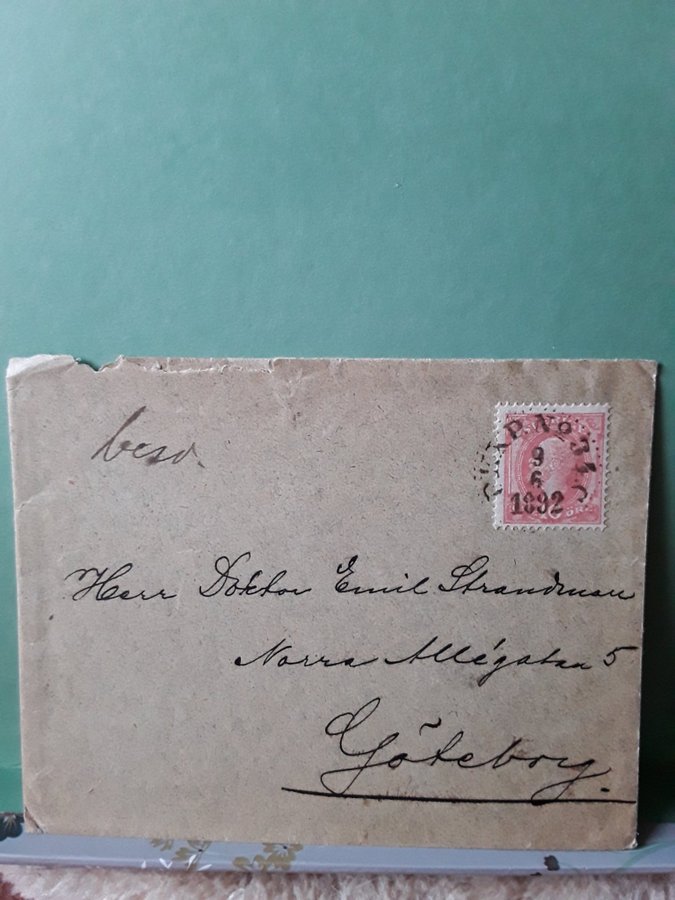 besv.
PKXP. No 34 C
9
6
1892
10 ÖRE
Herr Doktor Emil Strandman
Norra Allégatan 5
Göteborg.